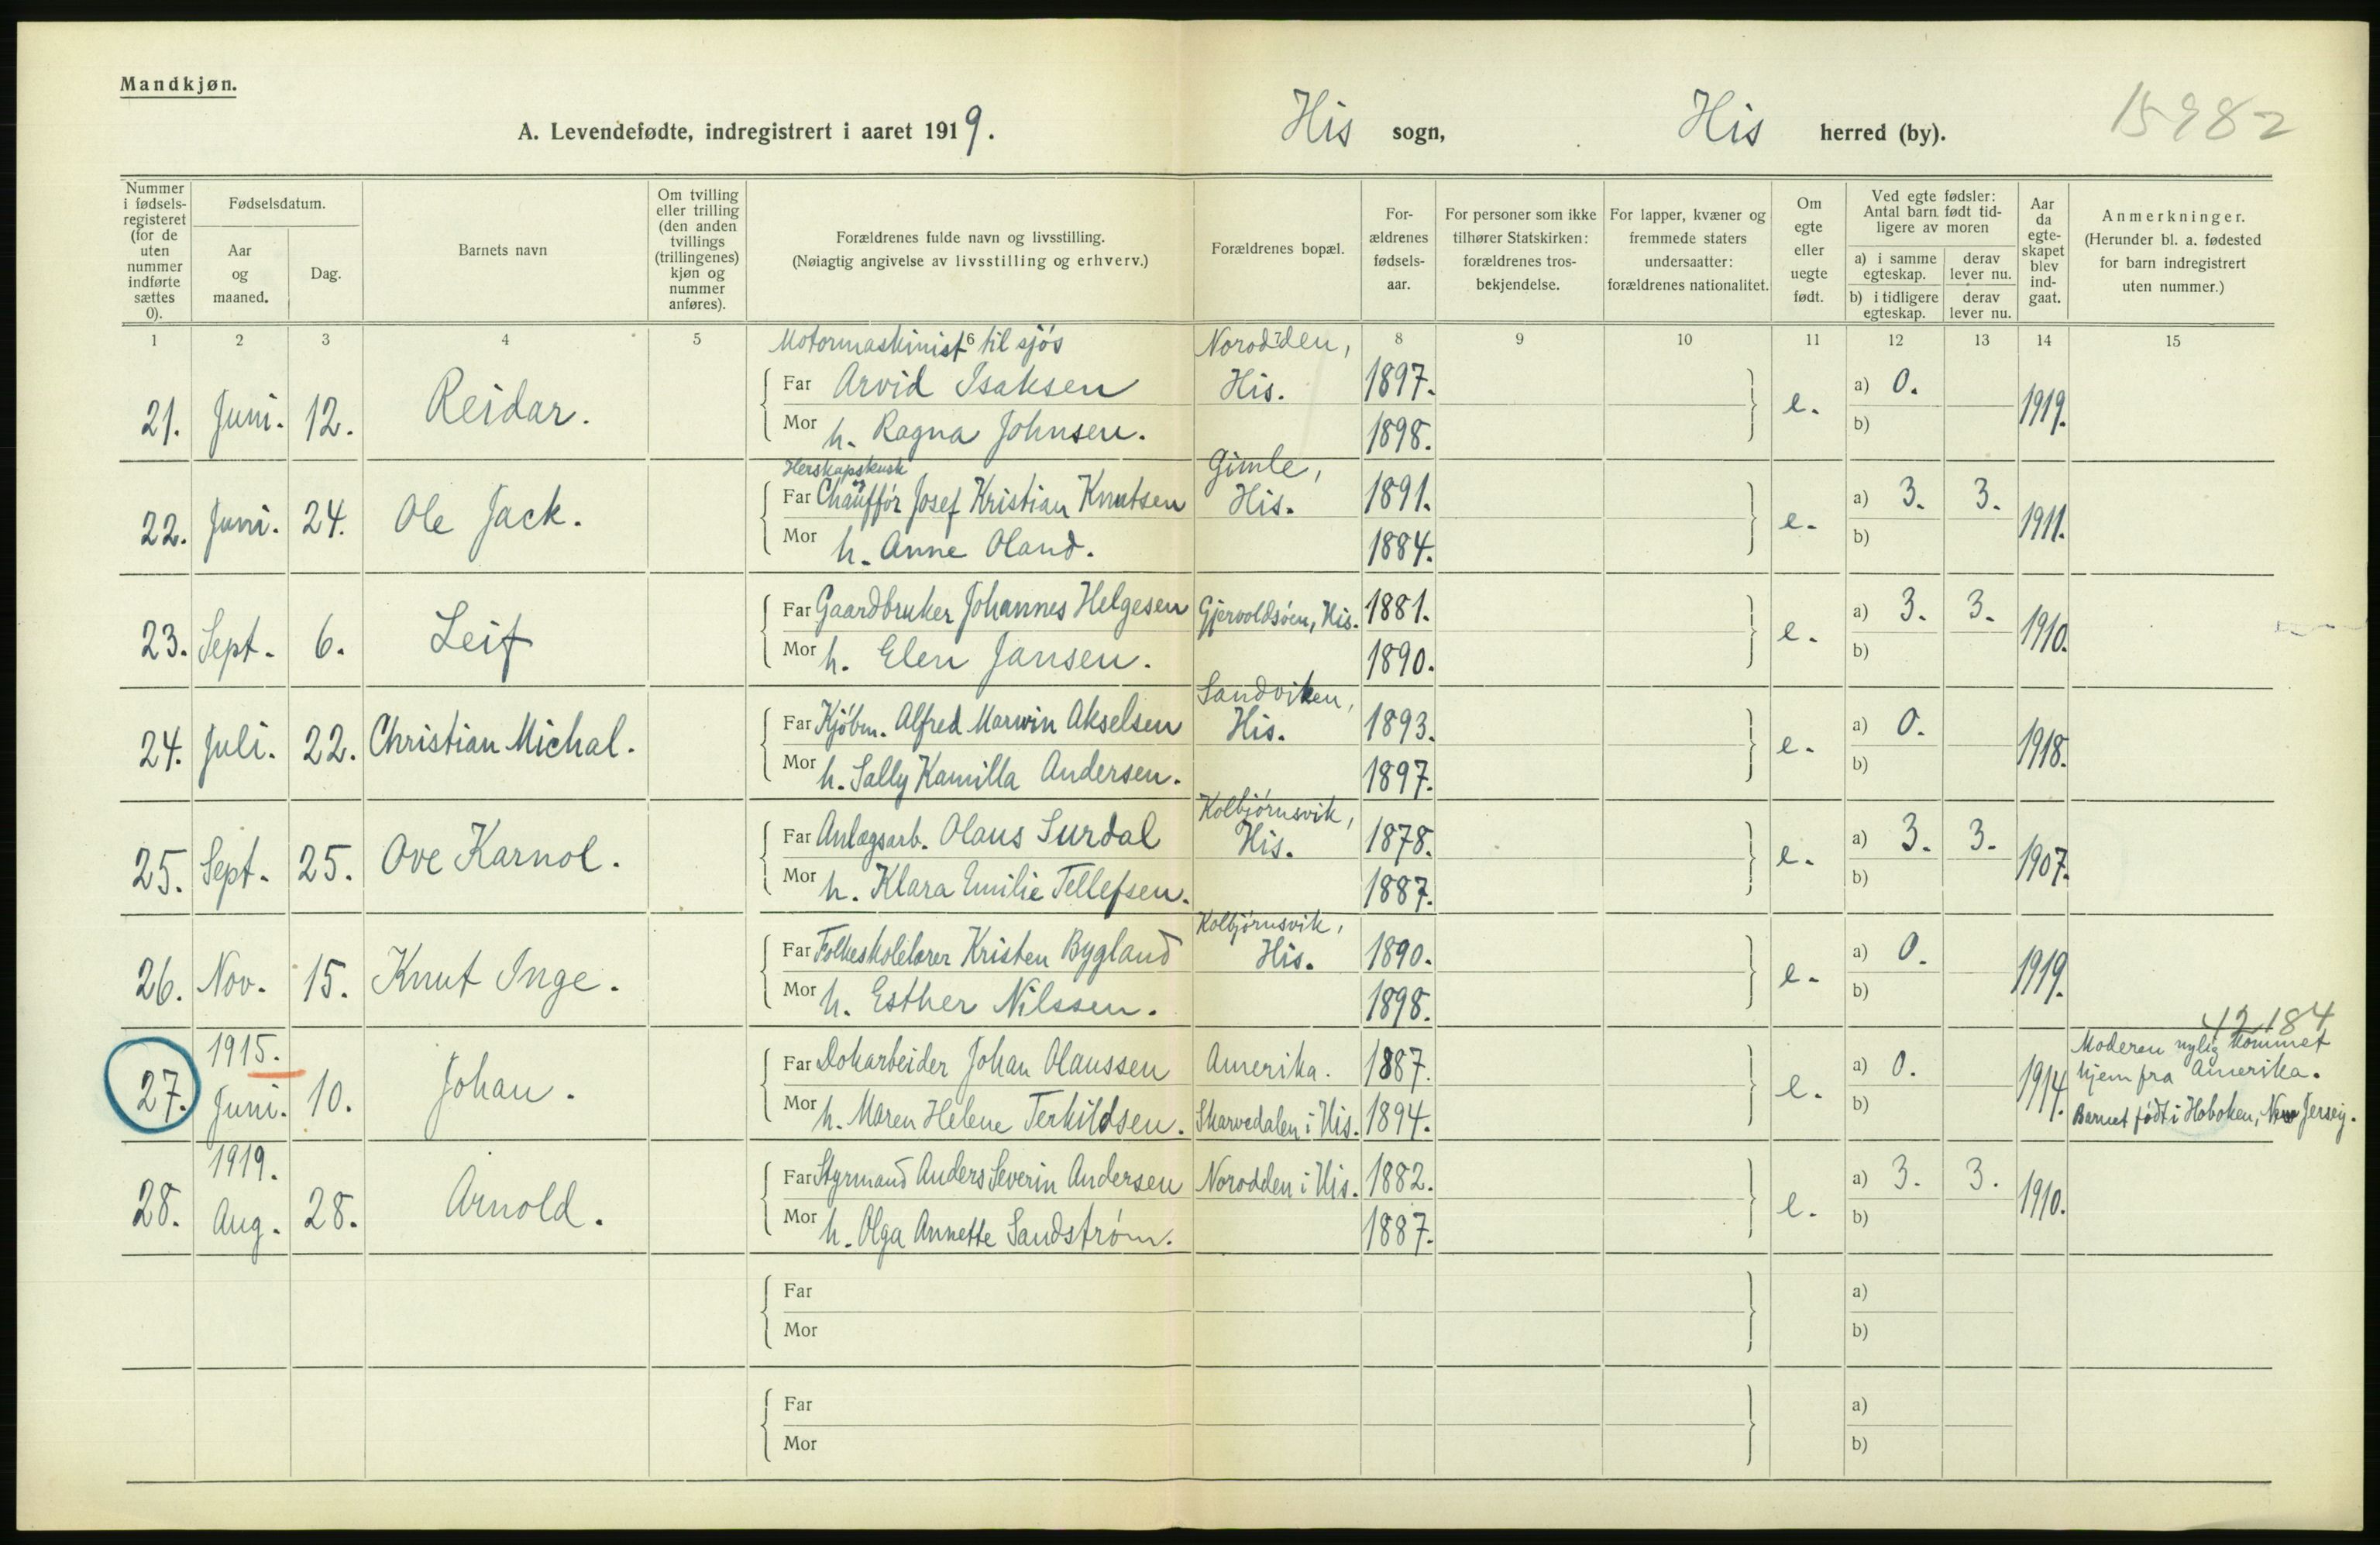 Mandkjøn.
A. Levendefødte, indregistrert i aaret 1919. His sogn, His herred (by). 15982
Nummer i fødsels-registeret (for de uten nummer indførte sættes 0).
Fødselsdatum.
Aar og maaned.
Dag.
Barnets navn
Om tvilling eller trilling (den anden tvillings (trillingenes) kjøn og nummer anføres).
Forældrenes fulde navn og livsstilling.
(Nøiagtig angivelse av livsstilling og erhverv.)
Forældrenes bopæl.
For-ældrenes fødsels-aar.
For personer som ikke tilhører Statskirken: forældrenes tros-bekjendelse.
For lapper, kvæner og fremmede staters undersaatter: forældrenes nationalitet.
Om egte eller uegte født.
Ved egte fødsler: Antal barn født tid-ligere av moren
a) i samme egteskap. derav lever nu.
b) i tidligere egteskap. derav lever nu.
Aar da egte-skapet blev ind-gaat.
Anmerkninger.
(Herunder bl. a. fødested for barn indregistrert uten nummer.)
1 2 3 4 5 6 7 8 9 10 11 12 13 14 15
Motormaskinist til sjös Norodden,
21. Juni. 12. Reidar. Far Arvid Isaksen His. 1897. e. a) 0. 1919.
Mor h. Ragna Johnsen. 1898. b)
Herskapskusk og Gimle,
22. Juni. 24. Ole Jack. Far Chaufför Josef Kristian Knutsen His. 1891. e. a) 3. 3. 1911.
Mor h. Anne Oland. 1884. b)
23. Sept. 6. Leif Far Gaardbruker Johannes Helgesen Gjervoldsöen, His. 1881. e. a) 3. 3. 1910.
Mor h. Elen Jansen. 1890. b)
Sandviken,
24. Juli. 22. Christian Michal. Far Kjöbm. Alfred Marwin Akselsen His. 1893. e. a) 0. 1918.
Mor h. Sally Kamilla Andersen. 1897. b)
Kolbjörnsvik,
25. Sept. 25. Ove Karnol. Far Anlægsarb. Olaus Surdal His. 1878. e. a) 3. 3. 1907.
Mor h. Klara Emilie Tellefsen. 1887. b)
Kolbjörnsvik,
26. Nov. 15. Knut Inge. Far Folkeskolelærer Kristen Bygland His. 1890. e. a) 0. 1919.
Mor h. Esther Nilssen. 1898. b)
42184
27. 1915. Juni. 10. Johan. Far Dokarbeider Johan Olaussen Amerika. 1887. e. a) 0. 1914. Moderen nylig kommet hjem fra Amerika.
Mor h. Maren Helene Terkildsen. Skarvedalen i His. 1894. b) Barnet födt i Hoboken, New Jersey.
28. 1919. Aug. 28. Arnold. Far Styrmand Anders Severin Andersen Norodden i His. 1882. e. a) 3. 3. 1910.
Mor h. Olga Annette Sandström. 1887. b)
Far a)
Mor b)
Far a)
Mor b)